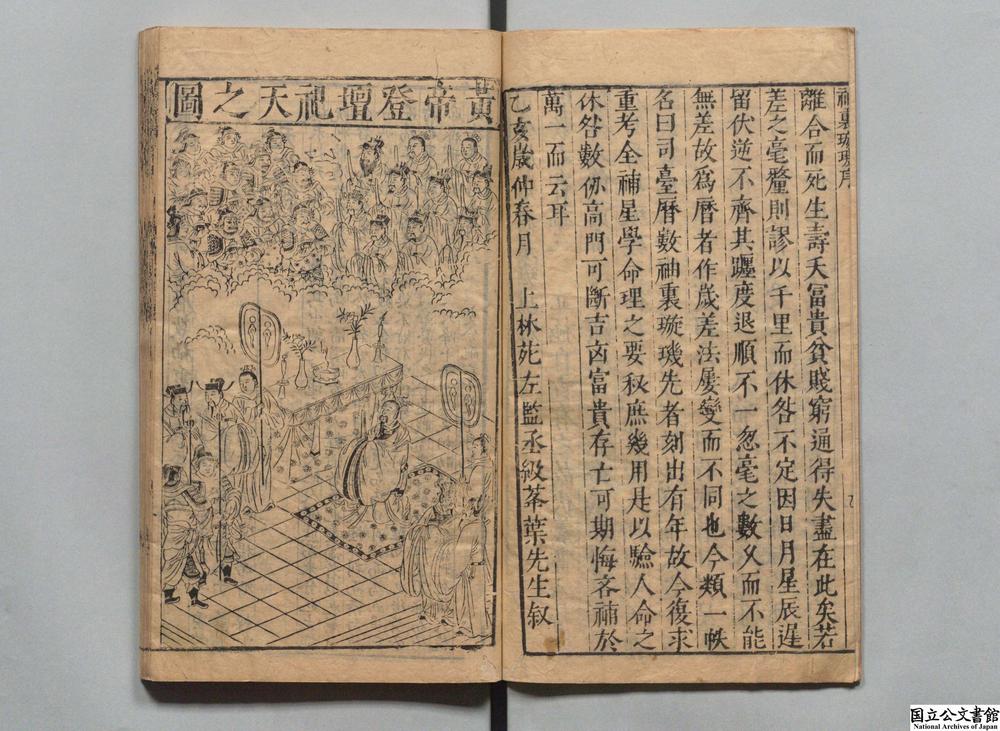 袖裏璇璣序
離合而死生壽夭冨貴貧賤窮通得失盡在此矣若
差之毫釐則謬以千里而休咎不定因日月星辰遲
留伏逆不齊其躔度退順不一忽毫之數乂而不能
無差故爲曆者作歲差法屢變而不同也今類一帙
名曰司臺曆數袖裏璇璣先者刻出有年故今復求
重考全補星學命理之要秘庶幾用是以驗人命之
休咎數仞高門可斷吉凶富貴存亡可期悔吝補於
萬一而云耳
乙亥歲仲春月 上林苑左監丞級峯葉先生叙
圖之天祀壇登帝黃
国立公文書館
National Archives of Japan